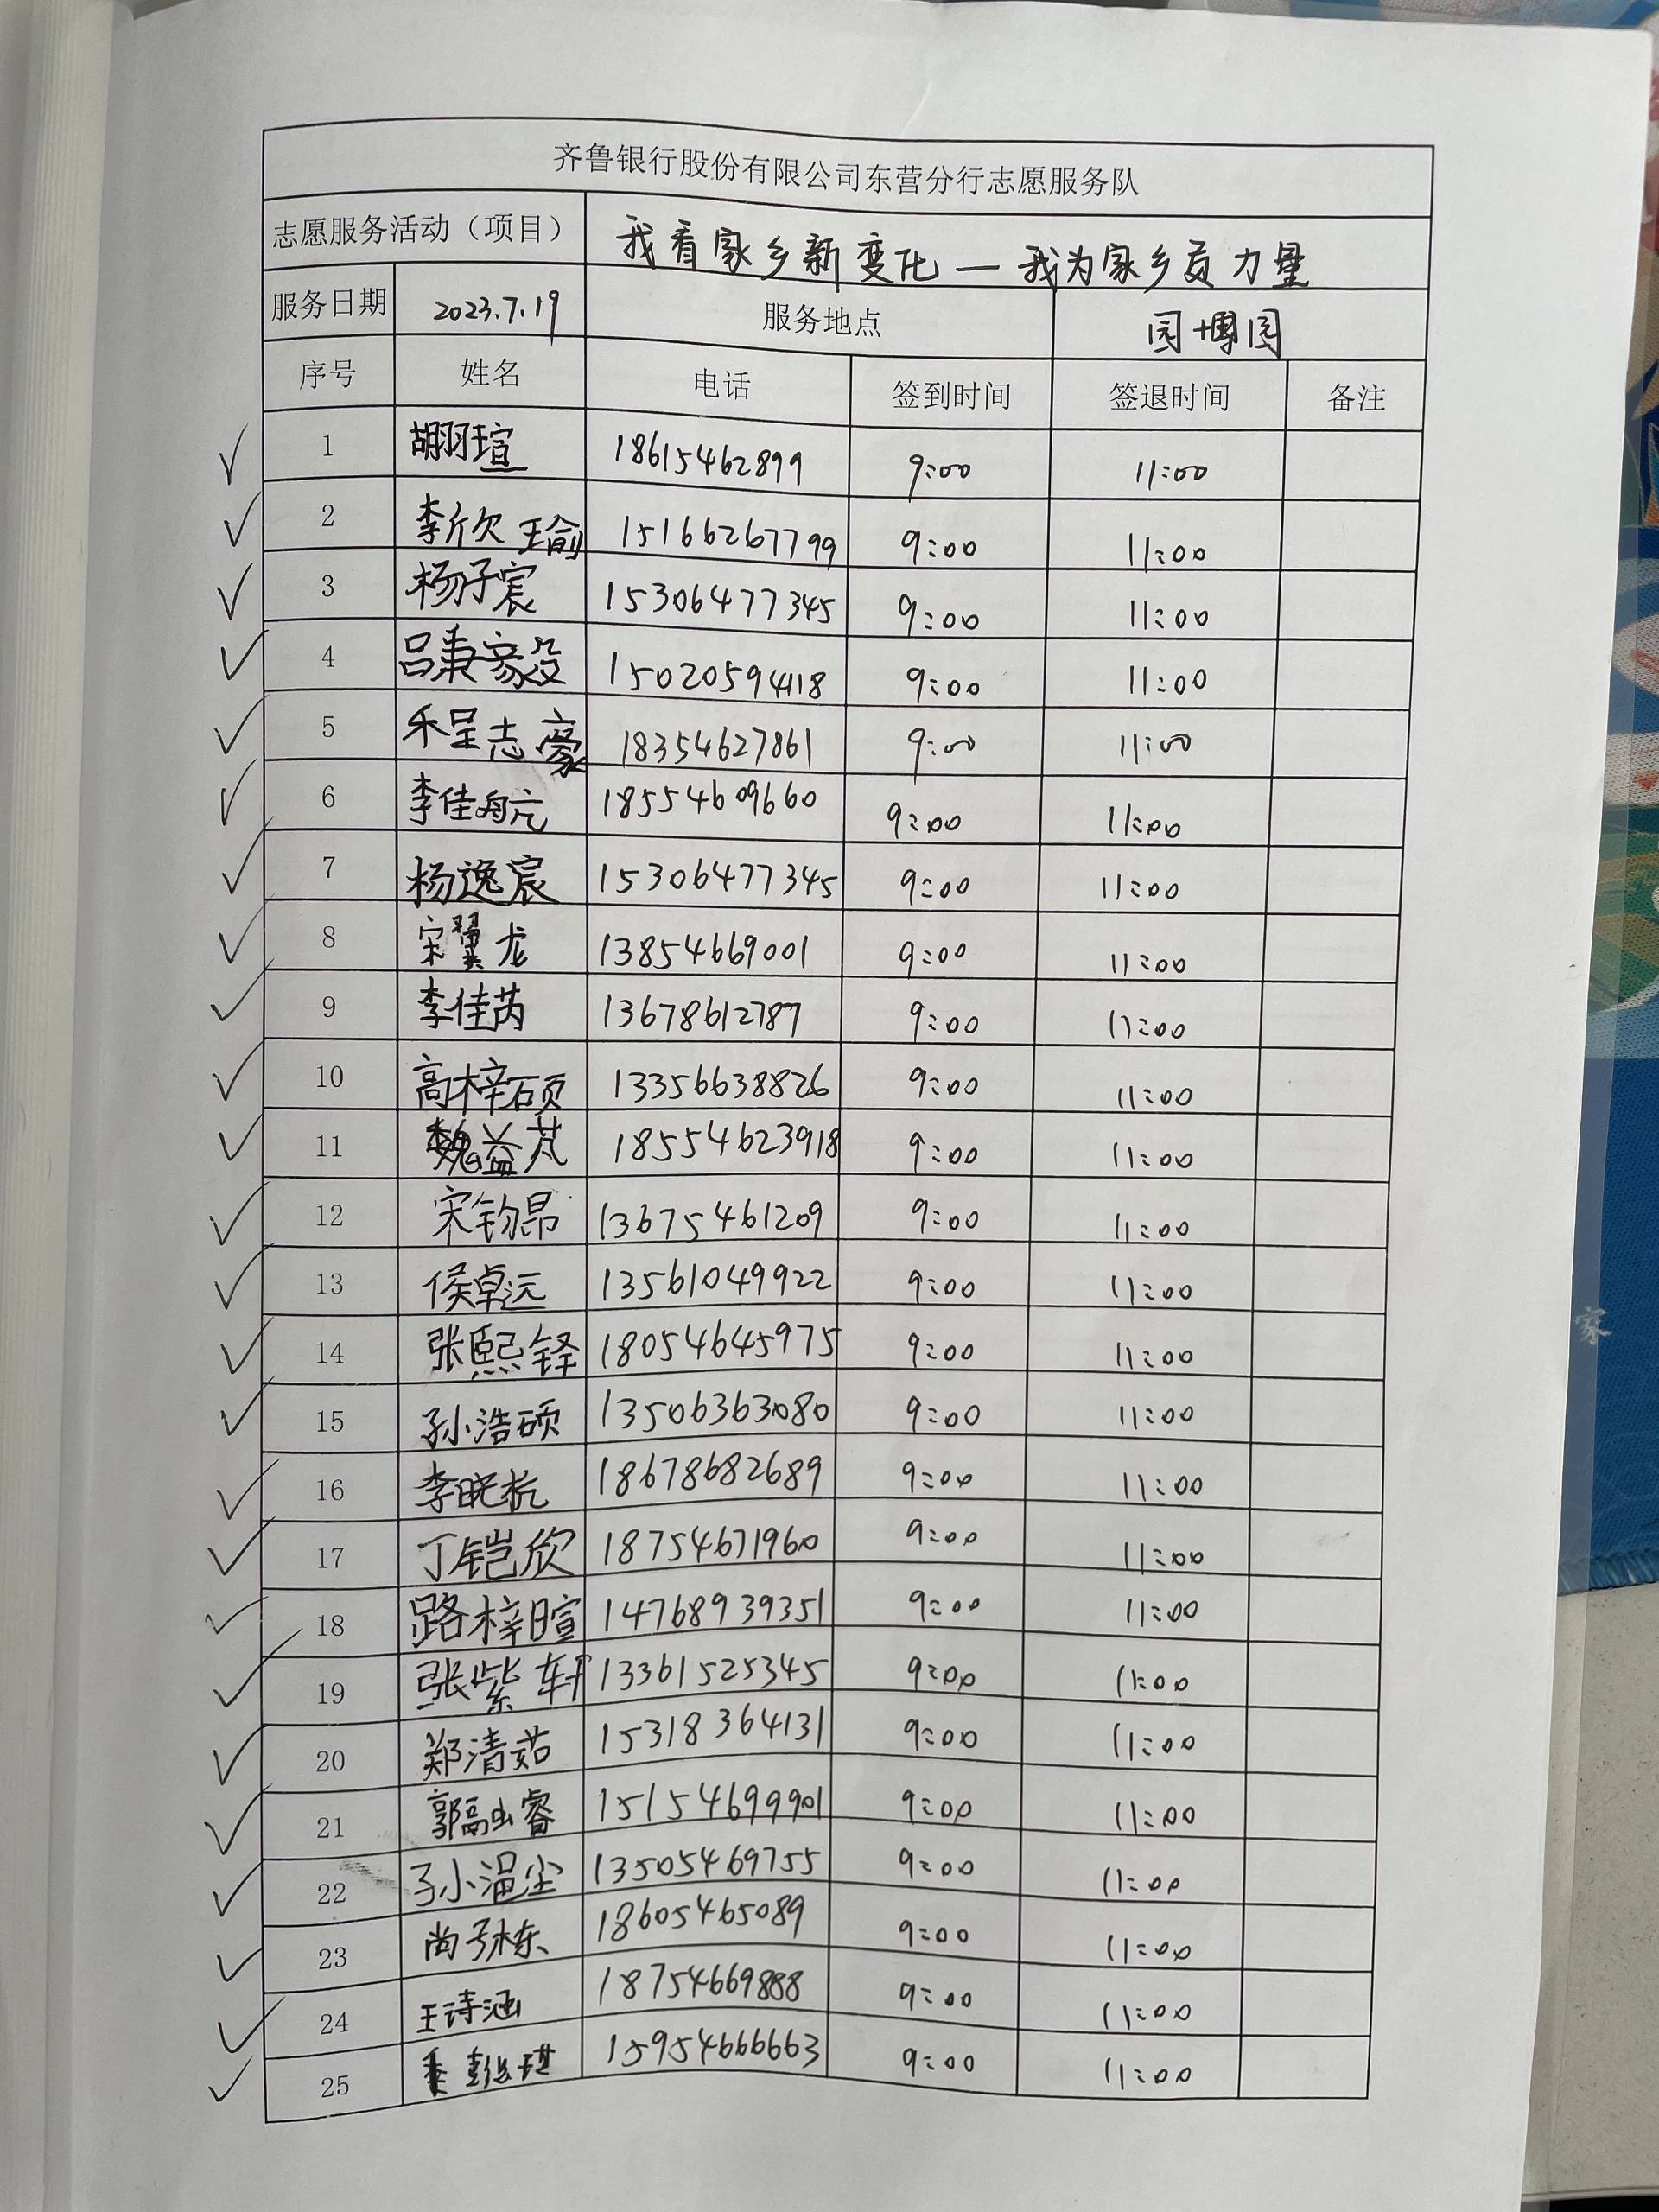 齐鲁银行股份有限公司东营分行志愿服务队
志愿服务活动（项目） 我看家乡新变化—我为家乡贡力量
服务日期 2023.7.19 服务地点 园博园
序号 姓名 电话 签到时间 签退时间 备注
1 胡羽瑄 18615462899 9:00 11:00
2 李欣瑜 15166267799 9:00 11:00
3 杨子宸 15306477345 9:00 11:00
4 吕秉家毅 15020594118 9:00 11:00
5 程志豪 18354627861 9:00 11:00
6 李佳航 18554609660 9:00 11:00
7 杨逸宸 15306477345 9:00 11:00
8 宋翼龙 13854669001 9:00 11:00
9 李佳芮 13678612787 9:00 11:00
10 高梓硕 13356638826 9:00 11:00
11 魏益芃 18554623918 9:00 11:00
12 宋钧昂 13675461209 9:00 11:00
13 侯卓远 13561049922 9:00 11:00
14 张熙铎 18054645975 9:00 11:00
15 孙浩硕 13506363080 9:00 11:00
16 李晓杭 18678682689 9:00 11:00
17 丁铠欣 18754671960 9:00 11:00
18 路梓暄 14768939351 9:00 11:00
19 张紫轩 13361525345 9:00 11:00
20 郑清茹 15318364131 9:00 11:00
21 郭融睿 15154699901 9:00 11:00
22 孙温尘 13505469755 9:00 11:00
23 尚子栋 18605465089 9:00 11:00
24 王诗涵 18754669888 9:00 11:00
25 15954666663 9:00 11:00
家